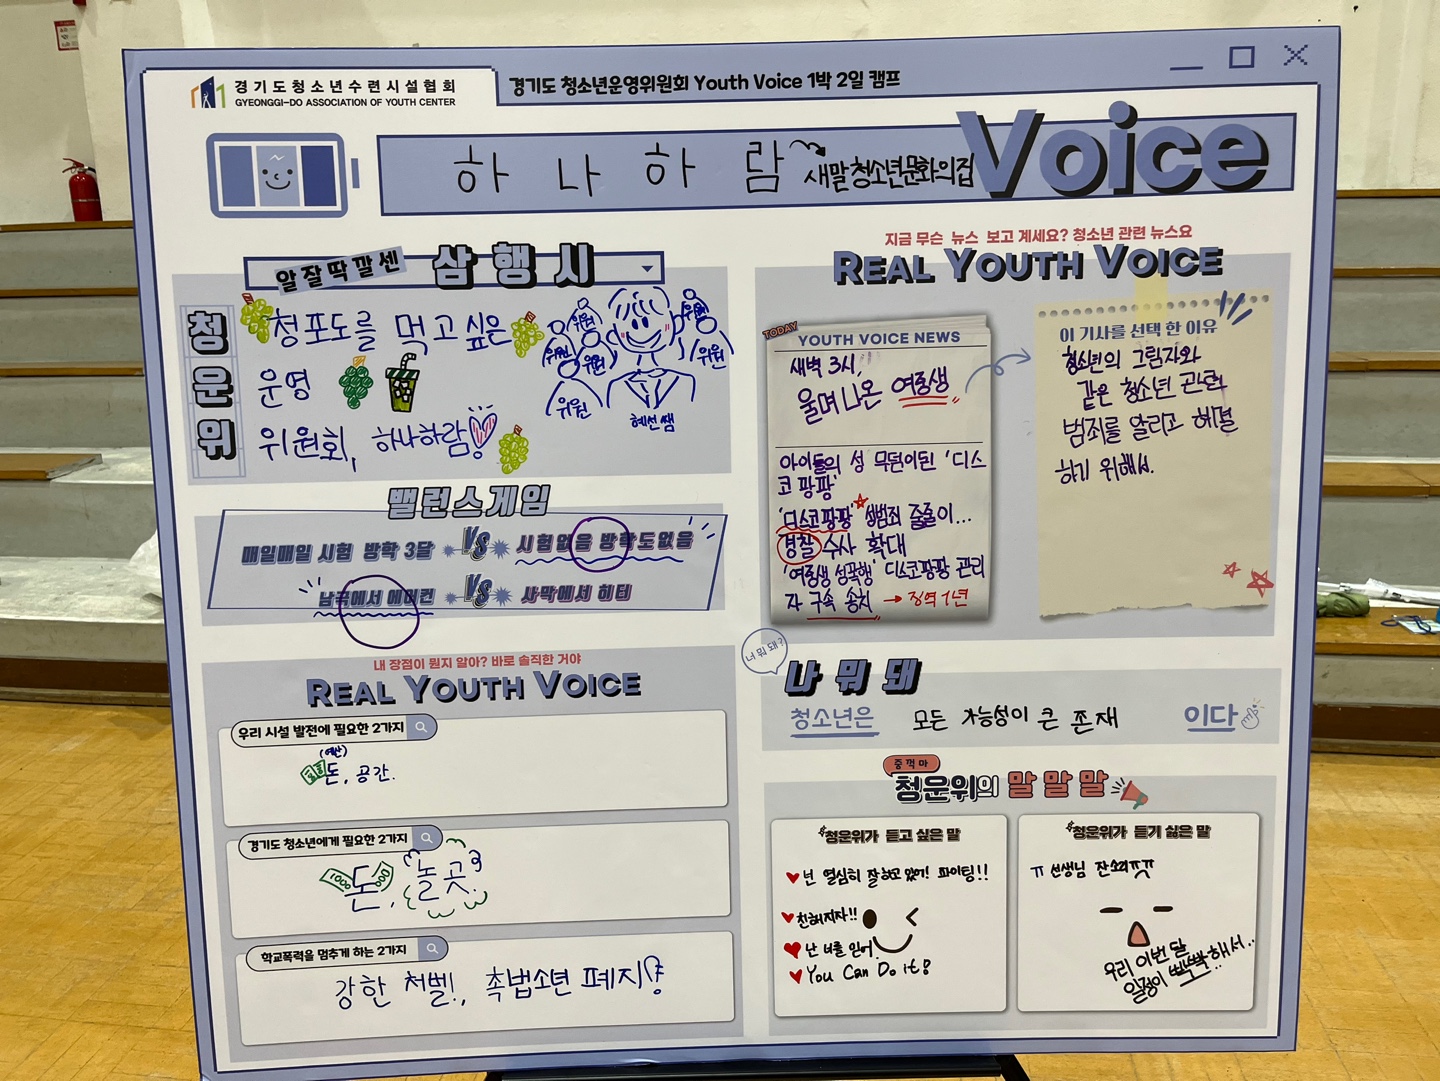 경기도청소년수련시설협회
GYEONGGI-DO ASSOCIATION OF YOUTH CENTER
경기도 청소년운영위원회 Youth Voice 1박 2일 캠프
하나하람
새말청소년문화의집
Voice
알잘딱깔센 삼행시
청 청포도를 먹고 싶은
운 운영
위 위원회, 하나하람!
위원
위원
위원
위원
위원
위원
혜선쌤
밸런스게임
매일매일 시험 방학 3달 VS 시험없음 방학도없음
남극에서 에어컨 VS 사막에서 히터
내 장점이 뭔지 알아? 바로 솔직한 거야
REAL YOUTH VOICE
우리 시설 발전에 필요한 2가지
(예산)
돈, 공간.
경기도 청소년에게 필요한 2가지
1000
돈, 놀 곳
학교폭력을 멈추게 하는 2가지
강한 처벌!, 촉법소년 폐지!
지금 무슨 뉴스 보고 계세요? 청소년 관련 뉴스요
REAL YOUTH VOICE
TODAY
YOUTH VOICE NEWS
새벽 3시,
울며 나온 여중생
아이들의 성 무덤이된 '디스
코 팡팡'
'디스코팡팡' 성범죄 줄줄이...
경찰 수사 확대
'여중생 성폭행' 디스코팡팡 관리
자 구속 송치 → 징역 1년
이 기사를 선택 한 이유
청소년의 그림자와
같은 청소년 관련
범죄를 알리고 해결
하기 위해서.
너 뭐 돼?
나 뭐 돼
청소년은 모든 가능성이 큰 존재 이다
중꺾마
청운위의 말말말
청운위가 듣고 싶은 말
넌 열심히 잘하고 있어! 파이팅!!
친해지자!!
난 너를 믿어
You Can Do it!
청운위가 듣기 싫은 말
ㅠ 선생님 잔소리ㅠㅠ
우리 이번 달
일정이 빡빡해서..